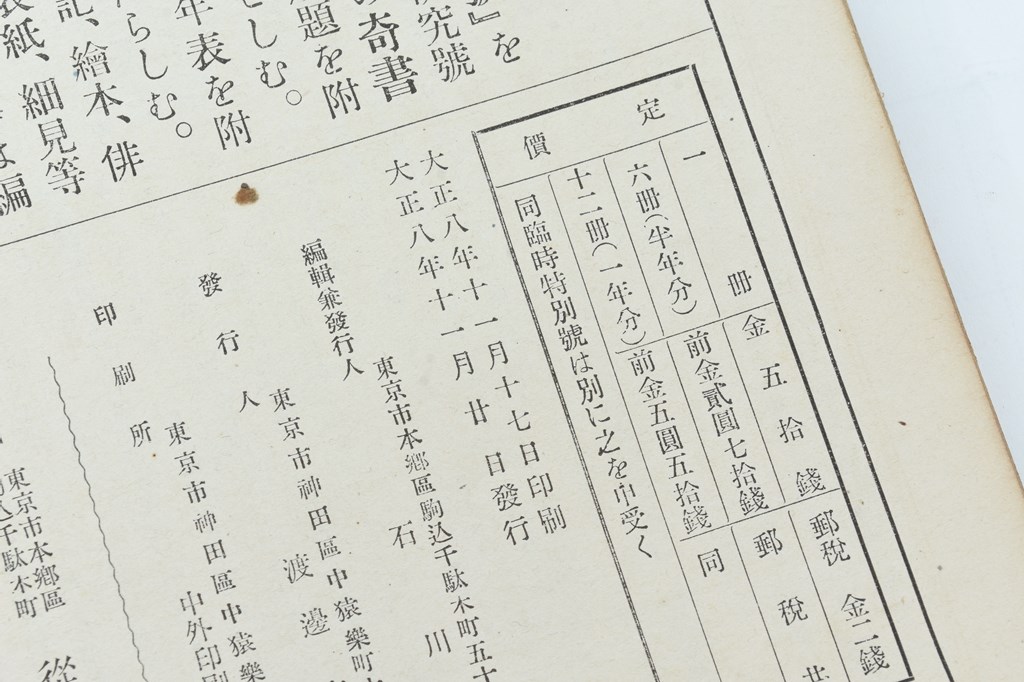 定價
一冊 金五拾錢 郵稅 金二錢
六冊(半年分) 前金貳圓七拾錢 郵稅
十二冊(一年分) 前金五圓五拾錢 同
同臨時特別號は別に之を申受く
大正八年十一月十七日印刷
大正八年十一月廿日發行
東京市本鄕區駒込千駄木町五十
編輯兼發行人 石川
東京市神田區中猿樂町
發行人 渡邊
東京市神田區中猿樂
印刷所 中外印刷
東京市本鄕區
千駄木町
從
』を
究號
奇書
題を附
しむ。
年表を附
らしむ。
記、繪本、俳
表紙、細見等
編